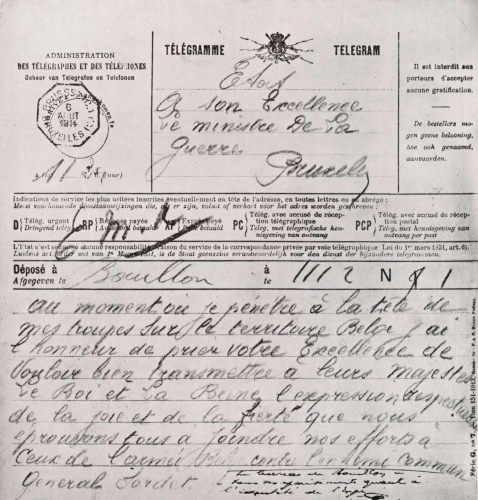 ADMINISTRATION
DES TÉLÉGRAPHES ET DES TÉLÉPHONES
Beheer van Telegrafen en Telefonen
6
AOUT
1914
TÉLÉGRAMME TELEGRAM
Il est interdit aux
porteurs d'accepter
aucune gratification.
De bestellers mo-
gen geene belooning,
hoe ook genaamd,
aanvaarden.
Etat
A son Excellence
Le ministre De La
Guerre
Bruxelles
Indications de service les plus usitées inscrites éventuellement en tête de l'adresse, en toutes lettres ou en abrégé :
Meest voorkomende dienstaanwijzingen die, als er zijn, voluit of verkort vóór het adres worden geschreven :
D Télég. urgent
Dringend teleg.
RP Réponse payée
XP
PC Télég. avec accusé de réception télégraphique
Teleg. met telegrafische kennisgeving van ontvangst
PCP Télég. avec accusé de réception postal
Teleg. met kennisgeving van ontvangst per post
L'État n'est soumis à aucune responsabilité à raison du service de la correspondance privée par voie télégraphique Loi du 1er mars 1851, art. 6).
Déposé à Bouillon à 1112 N 1
Afgegeven te te
au moment où je pénètre à la tête de
mes troupes sur le territoire Belge j'ai
l'honneur de prier votre Excellence de
vouloir bien transmettre à leurs majestés
Le Roi et La Reine l'expression respectueuse
de la joie et de la fierté que nous
éprouvons tous à joindre nos efforts à
ceux de l'armée Belge contre l'ennemi commun
General Sordet
Le bureau de Bouillon a